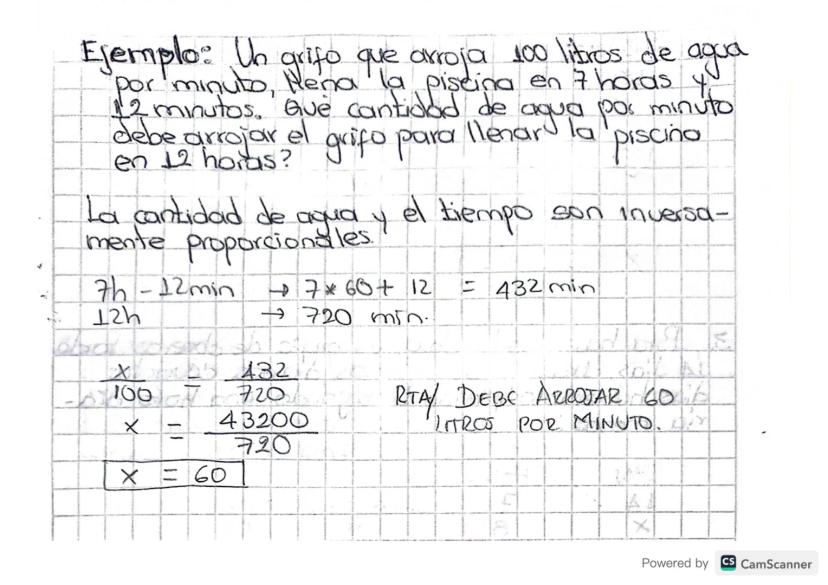 Ejemplo: Un grifo que arroja 100 litros de agua
por minuto, llena la piscina en 7 horas y
12 minutos. Qué cantidad de agua por minuto
debe arrojar el grifo para llenar la piscina
en 12 horas?
La cantidad de agua y el tiempo son inversa-
mente proporcionales.
7h - 12min → 7 * 60 + 12 = 432 min
12h → 720 min.
x/100 = 432/720
x = 43200/720
x = 60
RTA/ DEBE ARROJAR 60
LITROS POR MINUTO.
Powered by CS CamScanner